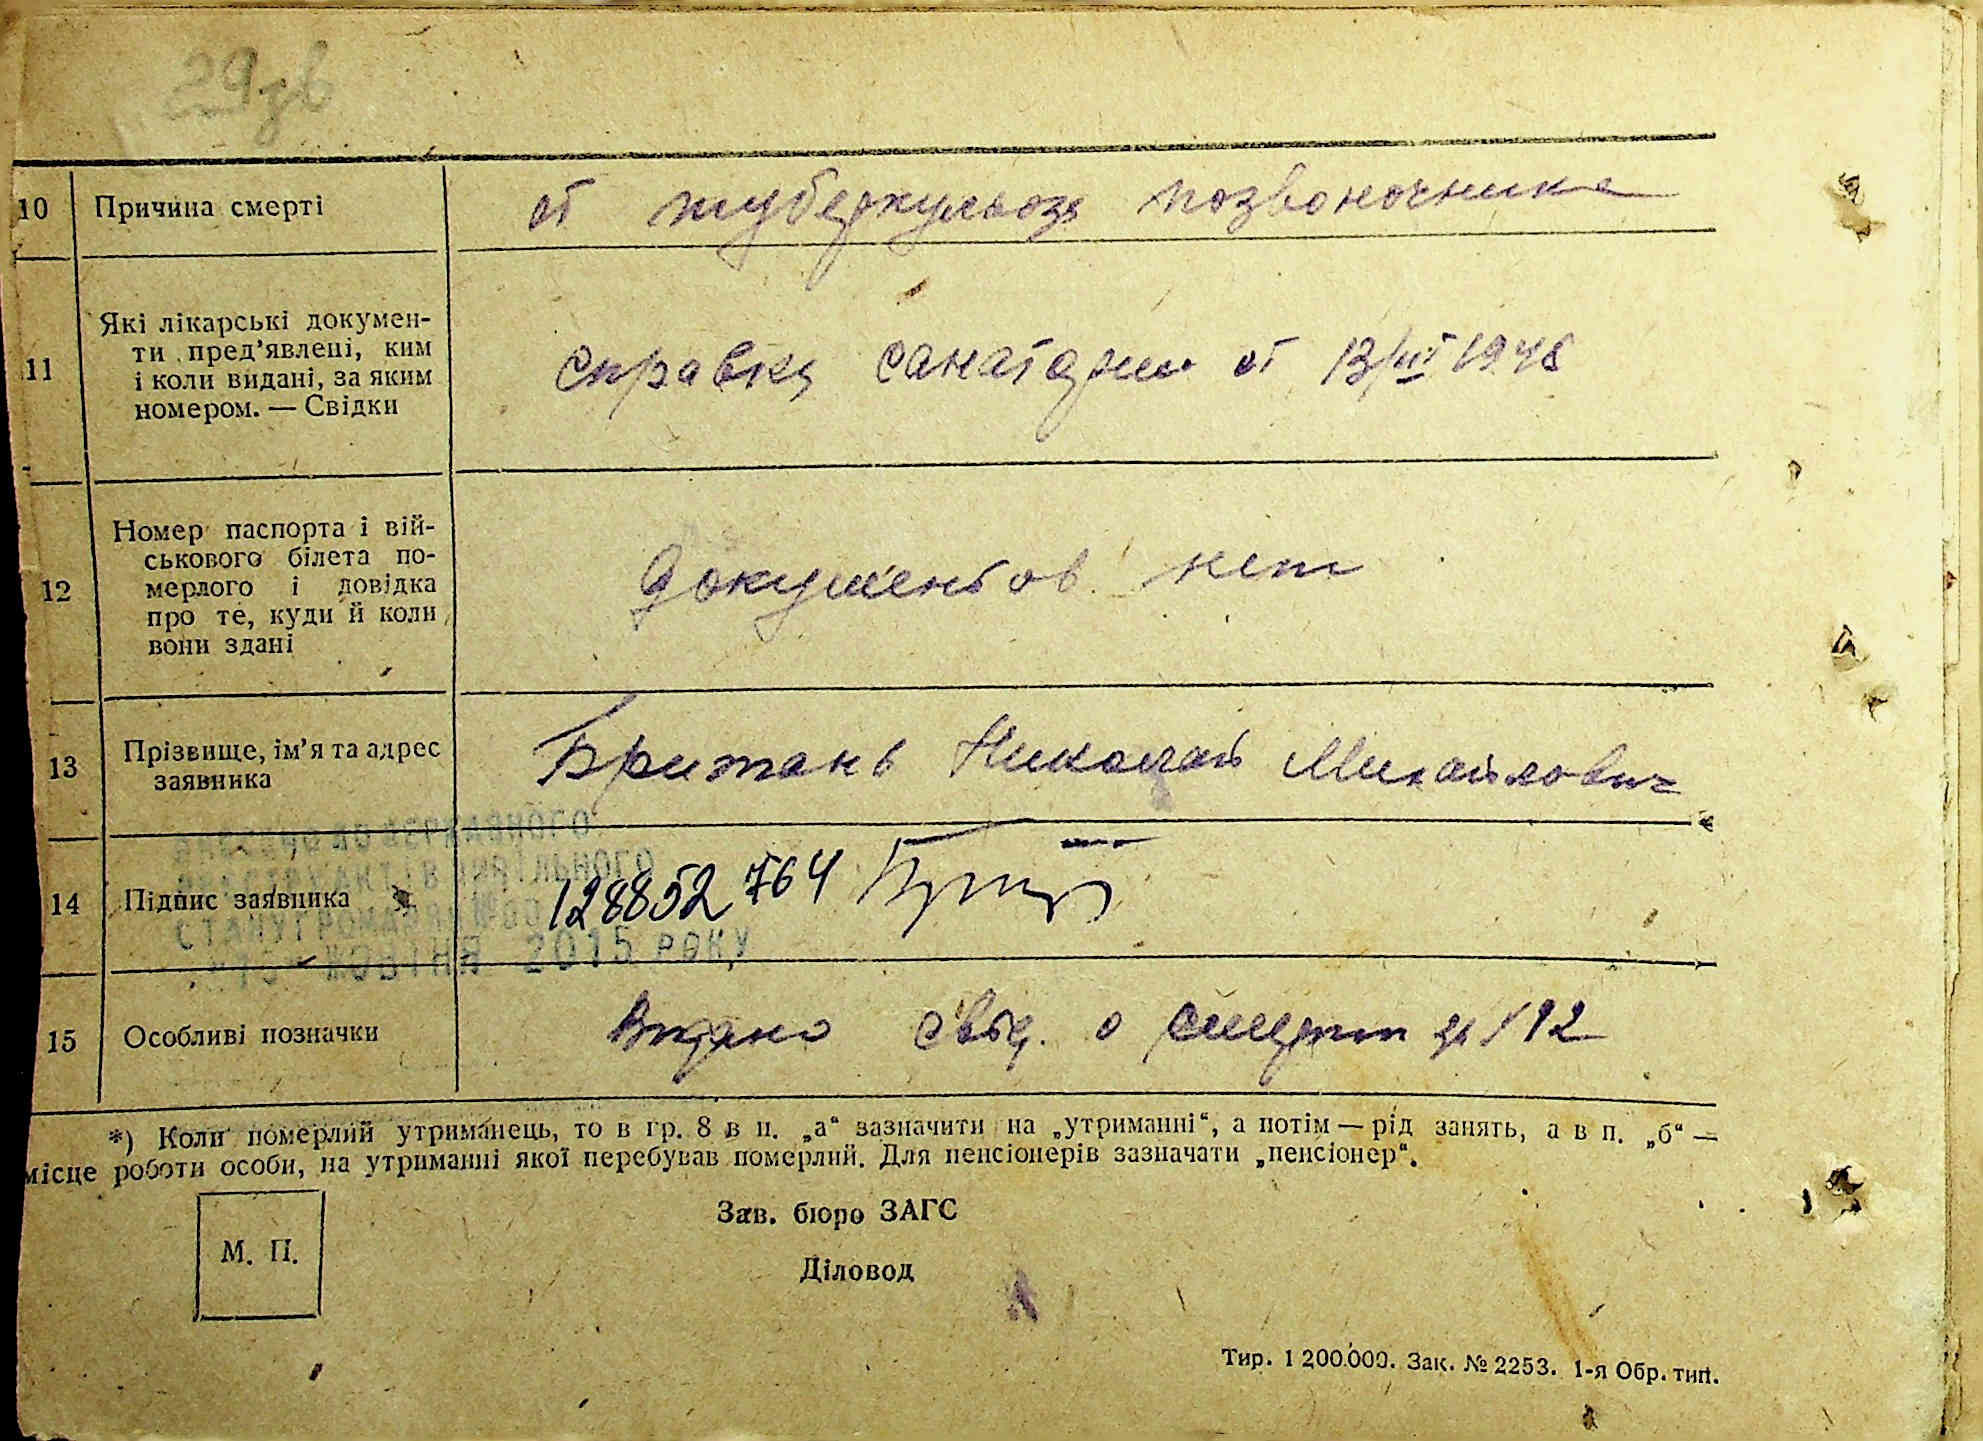 29зв
10 Причина смерті от туберкульоза позвоночника
11 Які лікарські докумен-
ти пред’явлені, ким
і коли видані, за яким
номером. — Свідки
справка санатории от 13/III 1946
12 Номер паспорта і вій-
ськового білета по-
мерлого і довідка
про те, куди й коли
вони здані
Документов нет
13 Прізвище, ім’я та адрес
заявника
Британь Николай Михайлович
ВНЕСЕНО ДО ДЕРЖАВНОГО
РЕЄСТРУ АКТІВ ЦИВІЛЬНОГО
14 Підпис заявника 128852764
СТАНУ ГРОМАДЯН
ЖОВТНЯ 2015 РОКУ
15 Особливі позначки Видано свід. о смерти 192
*) Коли померлий утриманець, то в гр. 8 в п. „а“ зазначити на „утриманні“, а потім — рід занять, а в п. „б“ —
місце роботи особи, на утриманні якої перебував померлий. Для пенсіонерів зазначати „пенсіонер“.
Зав. бюро ЗАГС
М. П.
Діловод
Тир. 1 200.000. Зак. № 2253. 1-я Обр. тип.